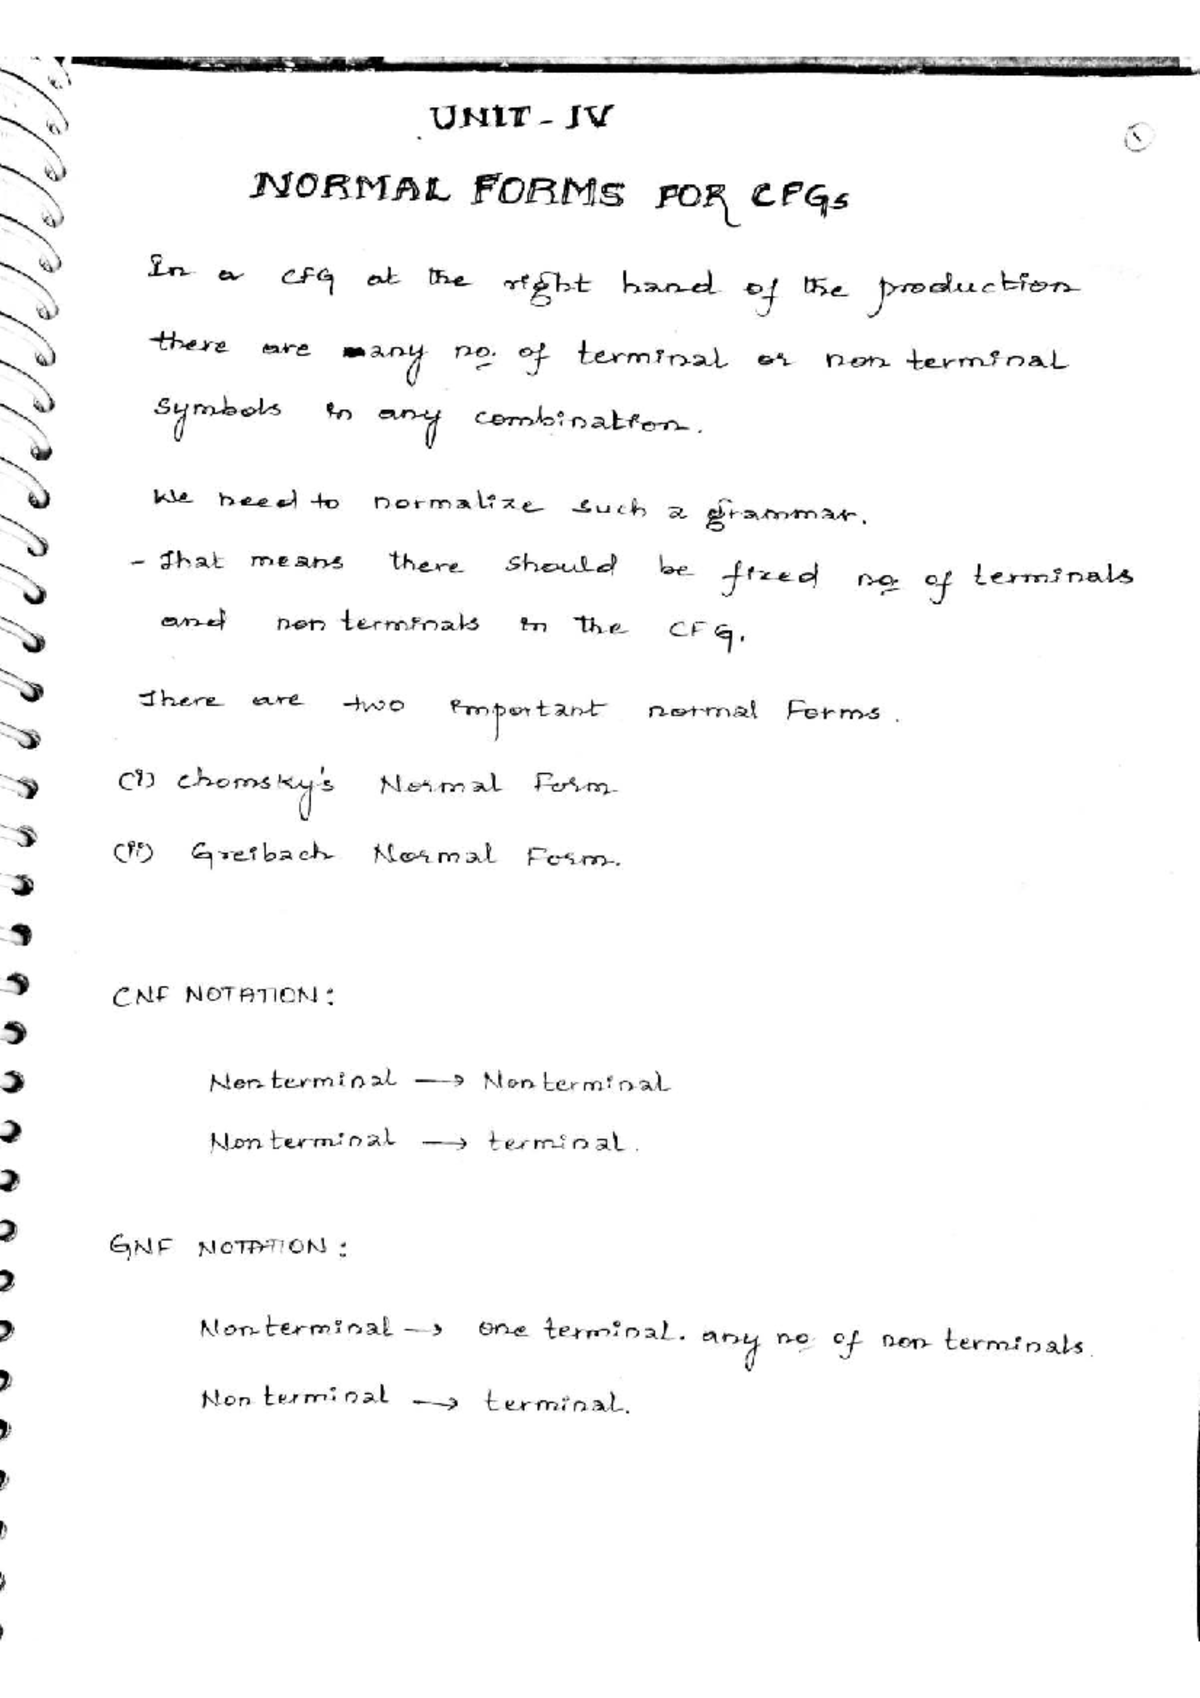 UNIT - IV
1
NORMAL FORMS FOR CFGs
In a CFG at the right hand of the production
there are many no. of terminal or non terminal
symbols in any combination.
We need to normalize such a grammar.
- That means there should be fixed no of terminals
and non terminals in the CFG.
There are two important normal Forms.
(i) Chomsky's Normal Form
(ii) Greibach Normal Form.
CNF NOTATION:
Non terminal → Non terminal
Non terminal → terminal.
GNF NOTATION:
Non terminal → one terminal. any no of non terminals.
Non terminal → terminal.